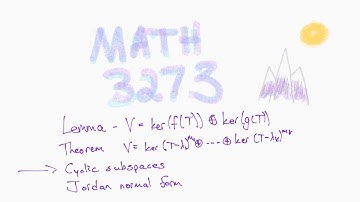 MATH
3273
Lemma - V = ker(f(T)) ⊕ ker(g(T))
Theorem V = ker (T-λ₁)^m₁ ⊕ ---- ⊕ ker (T-λₖ)^mₖ
→ Cyclic subspaces
Jordan normal form